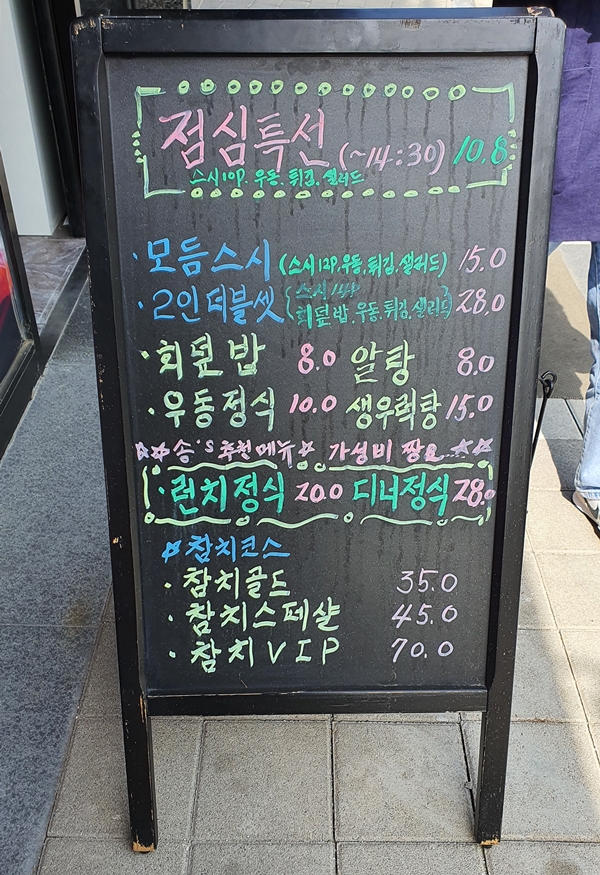 점심특선 (~14:30) 10.8
스시10P. 우동. 튀김. 샐러드
·모듬스시 (스시 12P, 우동. 튀김. 샐러드) 15.0
·2인더블셋 (스시 14P 회덮밥. 우동. 튀김. 샐러드) 28.0
·회덮밥 8.0 알탕 8.0
·우동정식 10.0 생우럭탕 15.0
☆☆송's추천메뉴☆ 가성비 짱요..☆☆
·런치정식 20.0 디너정식 28.0
☆참치코스
·참치골드 35.0
·참치스페샬 45.0
·참치VIP 70.0